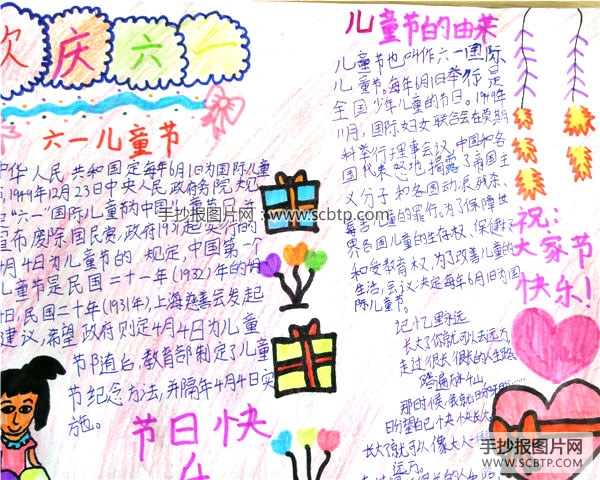 欢庆六一
六一儿童节
中华人民共和国定每年6月1日为国际儿童
节,1949年12月23日中央人民政府务院规
定“六一”国际儿童节为中国儿童节日,
宣布废除国民党政府1931起实行的
4月4日为儿童节的规定,中国第一个
儿童节是民国二十一年(1932)年的4月
4日,民国二十年(1931年),上海慈善会发起
建议,希望政府则定4月4日为儿童
节随后,教育部制定了儿童
节纪念方法,并隔年4月4日实
施。
节日快
儿童节的由来
儿童节也叫作六一国际
儿童节。每年6月1日举行是
全国少年儿童的节日。1949年
11月,国际妇女联合会在莫斯
科举行理事会议,中国和各
国代表怒地揭露了帝国主
义分子和各国动派残杀、
毒害儿童的罪行。为了保障世
界各国儿童的生存权、保健权
和受教育权,为了改善儿童的
生活,会议决定每年6月1日为国
际儿童节。
记忆里永远
长大了你就可以去远方,
走过很长很长的人生路
踏遍
那时候,我就
盼望自己快快长大,
长大了就可以像大人
远方。
祝:
大家节
快乐!
手抄报图片网:www.scbtp.com
手抄报图片网
WWW.SCBTP.COM